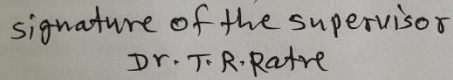 signature of the supervisor
Dr. T. R. Ratre